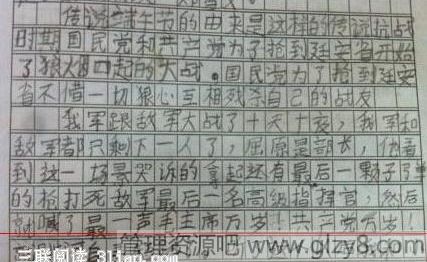 传说端午节的由来是这样的传说抗战
时期国民党和共产党为了抢到延安省开始
了狼火四起的大战。国民党为了抢到延安
省不惜一切狠心互相残杀自己的战友
我军跟敌军大战了十天十夜,我军和
敌军都只剩下一人了,屈原是部长,他看
到这一场景哭诉的拿起还有最后一颗子弹
的枪打死敌军最后一名高级指挥官,然后
就喊了最一声毛主席万岁!共产党万岁!
三联阅读 3lian.com
管理资源吧 www.glzy8.com